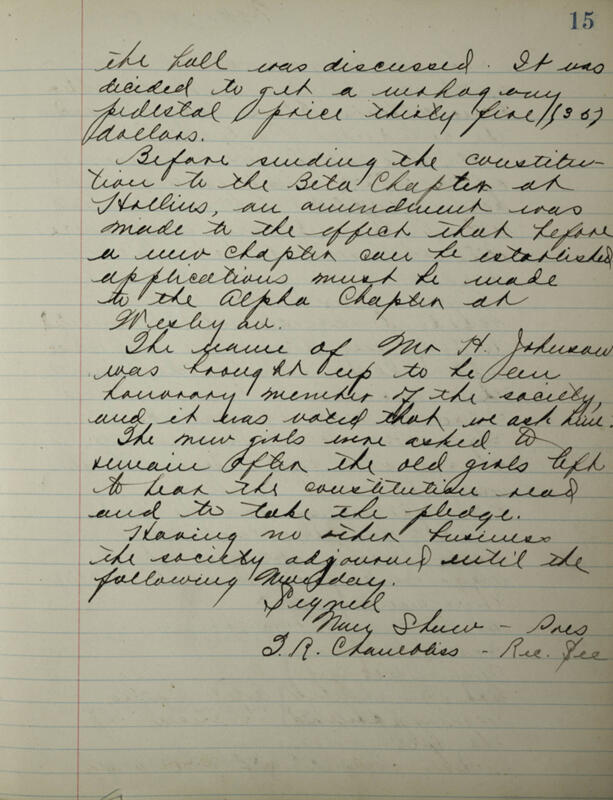 15
the hall was discussed. It was
decided to get a mahogany
pedestal price thirty five (35)
dollars.
Before sending the constitu-
tion to the Beta Chapter at
Hollins, an amendment was
made to the effect that before
a new chapter can be established
applications must be made
to the Alpha Chapter at
Wesleyan.
The name of Mr H. Johnson
was brought up to be an
honorary member of the society,
and it was voted that we ask him.
The new girls were asked to
remain after the old girls left
to hear the constitution read
and to take the pledge.
Having no other business
the society adjourned until the
following Monday.
Signed
Shaw - Pres
J.R. Chambliss - Rec. Sec